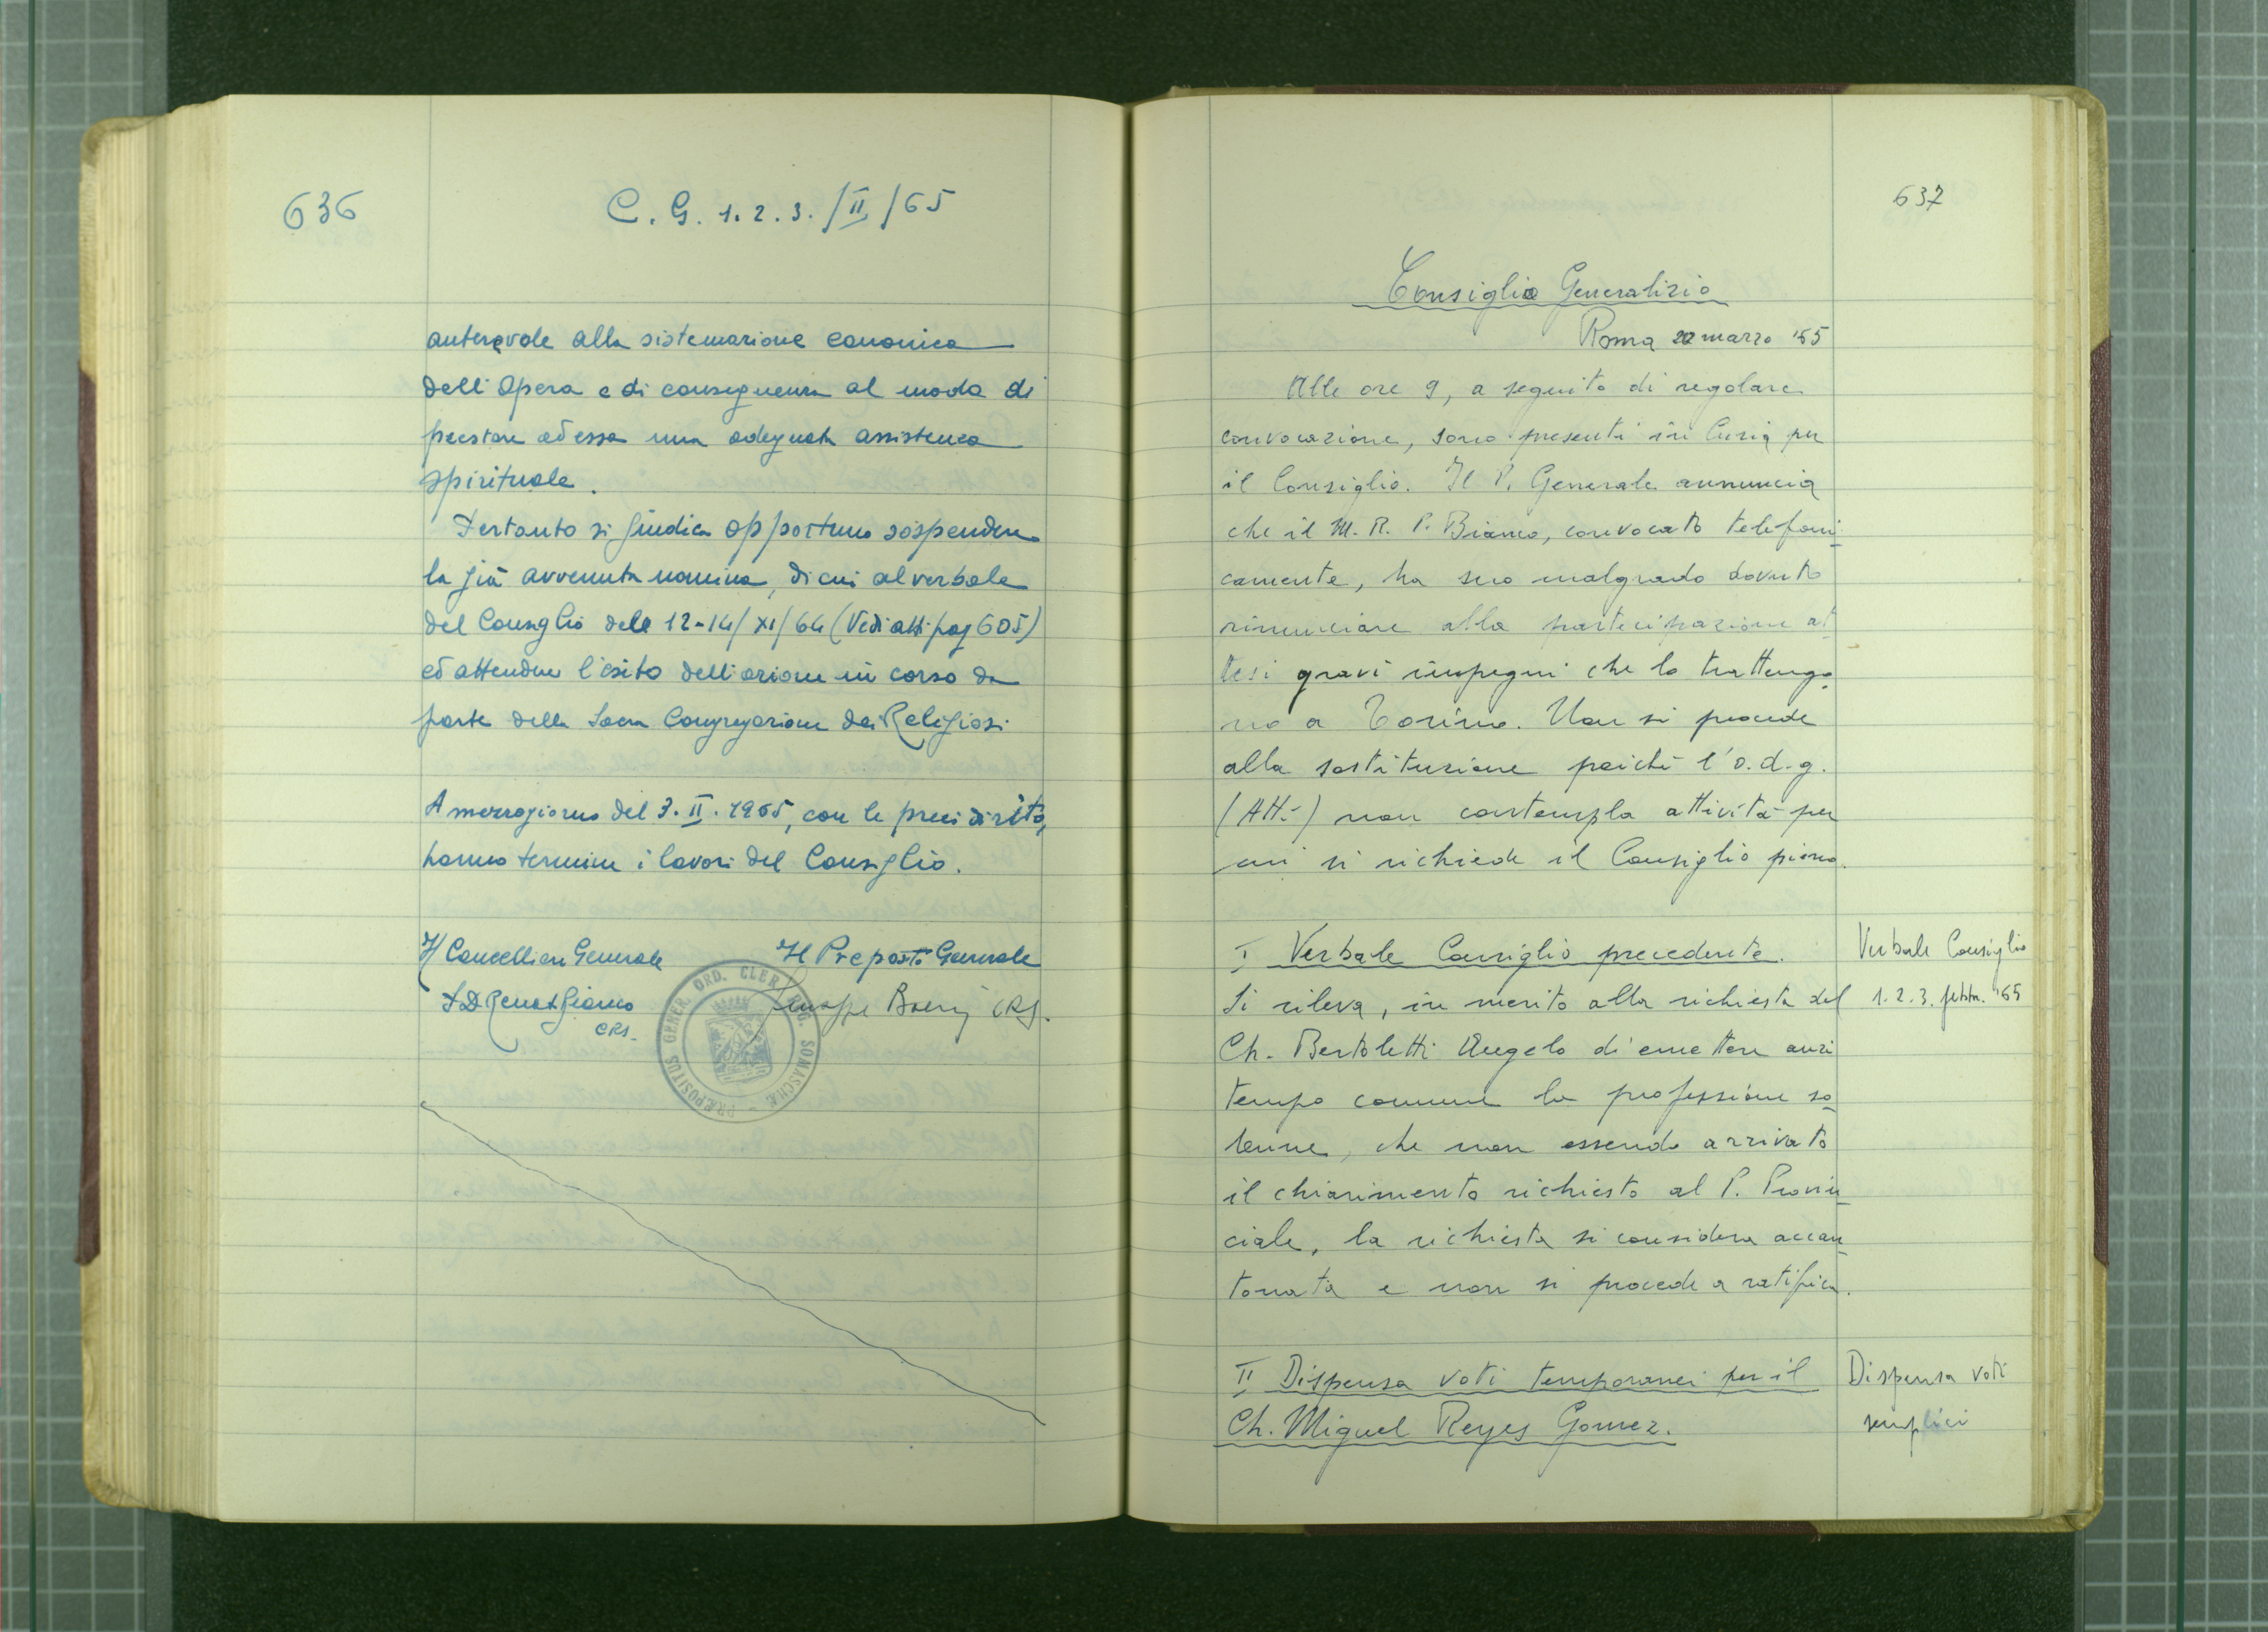 636
C. G. 1. 2. 3. /II/65
autorevole alla sistemazione canonica
dell'Opera e di conseguenza al modo di
prestare ad essa una adeguata assistenza
spirituale.
Pertanto si giudica opportuno sospendere
la già avvenuta nomina, di cui al verbale
del Consiglio del 12-14/XI/64 (Vedi atti pag 605)
ed attendere l'esito dell'azione in corso da
parte della Sacra Congregazione dei Religiosi
A mezzogiorno del 3. II. 1965, con le preci di rito,
hanno termine i lavori del Consiglio.
Il Cancelliere Generale Il Preposto Generale
CRS. Giuseppe CRS.
PRÆPOSITUS GENER. ORD. CLER. REG. SOMASCHÆ
637
Consiglio Generalizio
Roma marzo '65
Alle ore 9, a seguito di regolare
convocazione, sono presenti in Curia per
il Consiglio. Il P. Generale annuncia
che il M. R. P. Bianco, convocato telefoni-
camente, ha suo malgrado dovuto
rinunciare alla partecipazione at-
tesi gravi impegni che lo trattengo-
no a Torino. Non si procede
alla sostituzione poiché l'o.d.g.
(Atti) non contempla attività per
cui si richiede il Consiglio pieno.
I Verbale Consiglio precedente.
Si rileva, in merito alla richiesta del
Ch. Bertoletti Angelo di emettere anzi
tempo comune la professione so-
lenne, che non essendo arrivato
il chiarimento richiesto al P. Provin-
ciale, la richiesta si considera accan-
tonata e non si procede a ratifica.
Verbale Consiglio
1. 2. 3. febbr. '65
II Dispensa voti temporanei per il
Ch. Miguel Reyes Gomez.
Dispensa voti
semplici